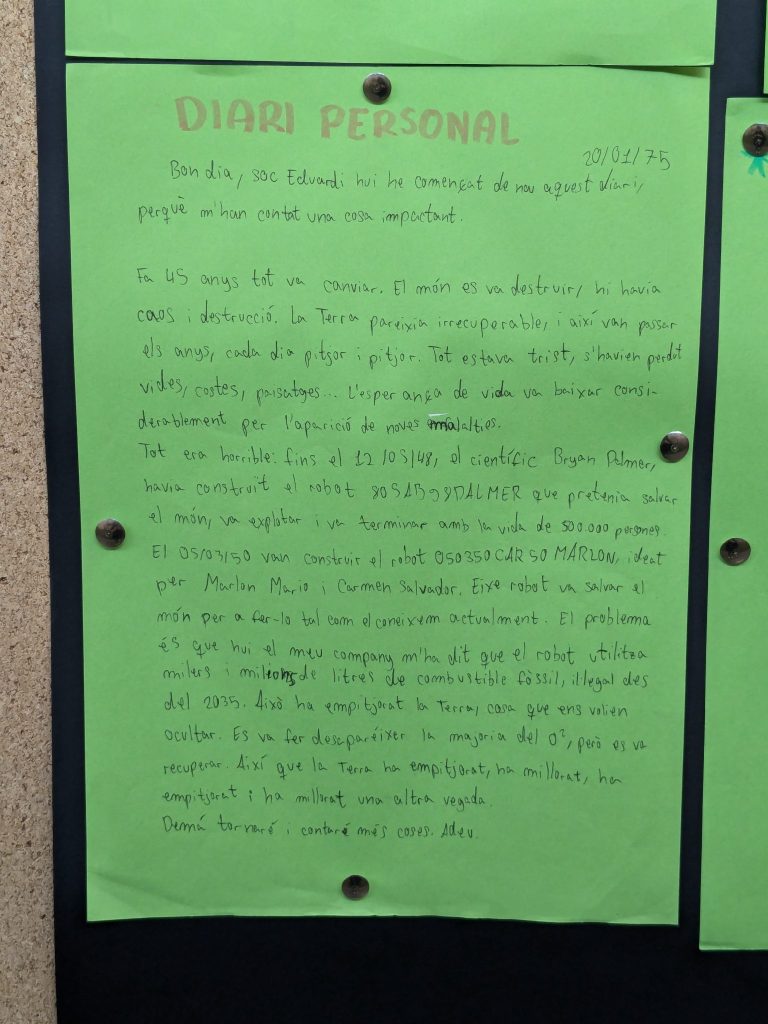 DIARI PERSONAL
20/01/75
Bon dia, soc Eduardi hui he començat de nou aquest diari,
perquè m'han contat una cosa impactant.
Fa 45 anys tot va canviar. El món es va destruir, hi havia
caos i destrucció. La Terra pareixia irrecuperable, i així van passar
els anys, cada dia pitjor i pitjor. Tot estava trist, s'havien perdut
vides, costes, paisatges... L'esperança de vida va baixar consi-
derablement per l'aparició de noves malalties.
Tot era horrible: fins el 12/05/48, el científic Bryan Palmer,
havia construït el robot que pretenia salvar
el món, va explotar i va terminar amb la vida de 500.000 persones.
El 05/03/50 van construir el robot 050350CARSOMARLON, ideat
per Marlon Mario i Carmen Salvador. Eixe robot va salvar el
món per a fer-lo tal com el coneixem actualment. El problema
és que hui el meu company m'ha dit que el robot utilitza
milers i milions de litres de combustible fòssil, il·legal des
del 2035. Això ha empitjorat la Terra, cosa que ens volien
ocultar. Es va fer desaparéixer la majoria del O², però es va
recuperar. Així que la Terra ha empitjorat, ha millorat, ha
empitjorat i ha millorat una altra vegada.
Demá tornaré i contaré més coses. Adeu.